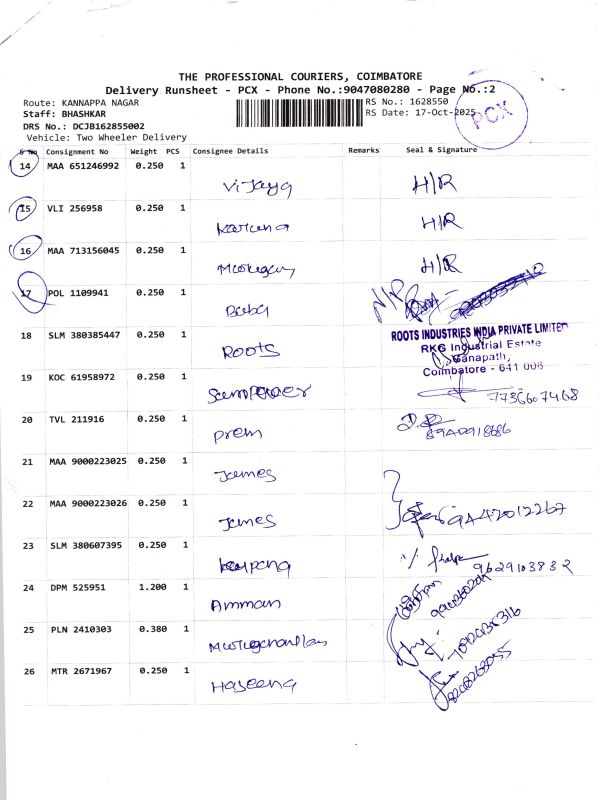 THE PROFESSIONAL COURIERS, COIMBATORE
Delivery Runsheet - PCX - Phone No.:9047080280 - Page No.:2
Route: KANNAPPA NAGAR
RS No.: 1628550
Staff: BHASHKAR
RS Date: 17-Oct-2025
PCX
DRS No.: DCJB162855002
Vehicle: Two Wheeler Delivery
S No Consignment No Weight PCS Consignee Details Remarks Seal & Signature
14 MAA 651246992 0.250 1 Vijaya H/R
15 VLI 256958 0.250 1 Karuna H/R
16 MAA 713156045 0.250 1 Murugan H/R
17 POL 1109941 0.250 1 Baby N/P
18 SLM 380385447 0.250 1 Roots
ROOTS INDUSTRIES INDIA PRIVATE LIMITED
RKG Industrial Estate
Ganapathy,
Coimbatore - 641 006
19 KOC 61958972 0.250 1 7736607468
20 TVL 211916 0.250 1 Prem 8940918686
21 MAA 9000223025 0.250 1 James
22 MAA 9000223026 0.250 1 James 9442012267
23 SLM 380607395 0.250 1 9629103832
24 DPM 525951 1.200 1 Amman
25 PLN 2410303 0.380 1
26 MTR 2671967 0.250 1 Haseena